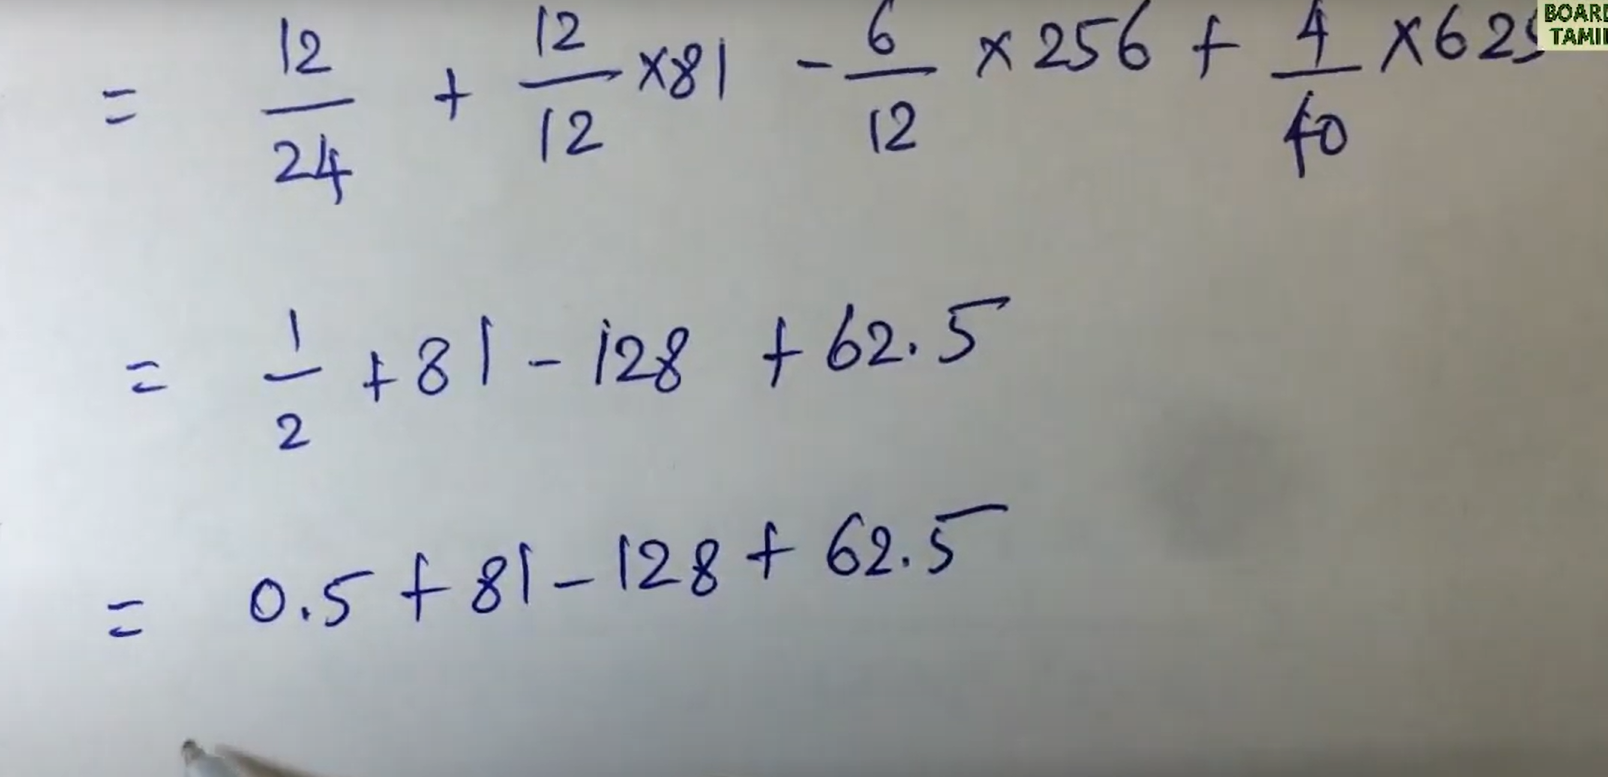 = 12/24 + 12/12 ×81 - 6/12 × 256 + 4/40 ×625
= 1/2 + 81 - 128 + 62.5
= 0.5 + 81 - 128 + 62.5